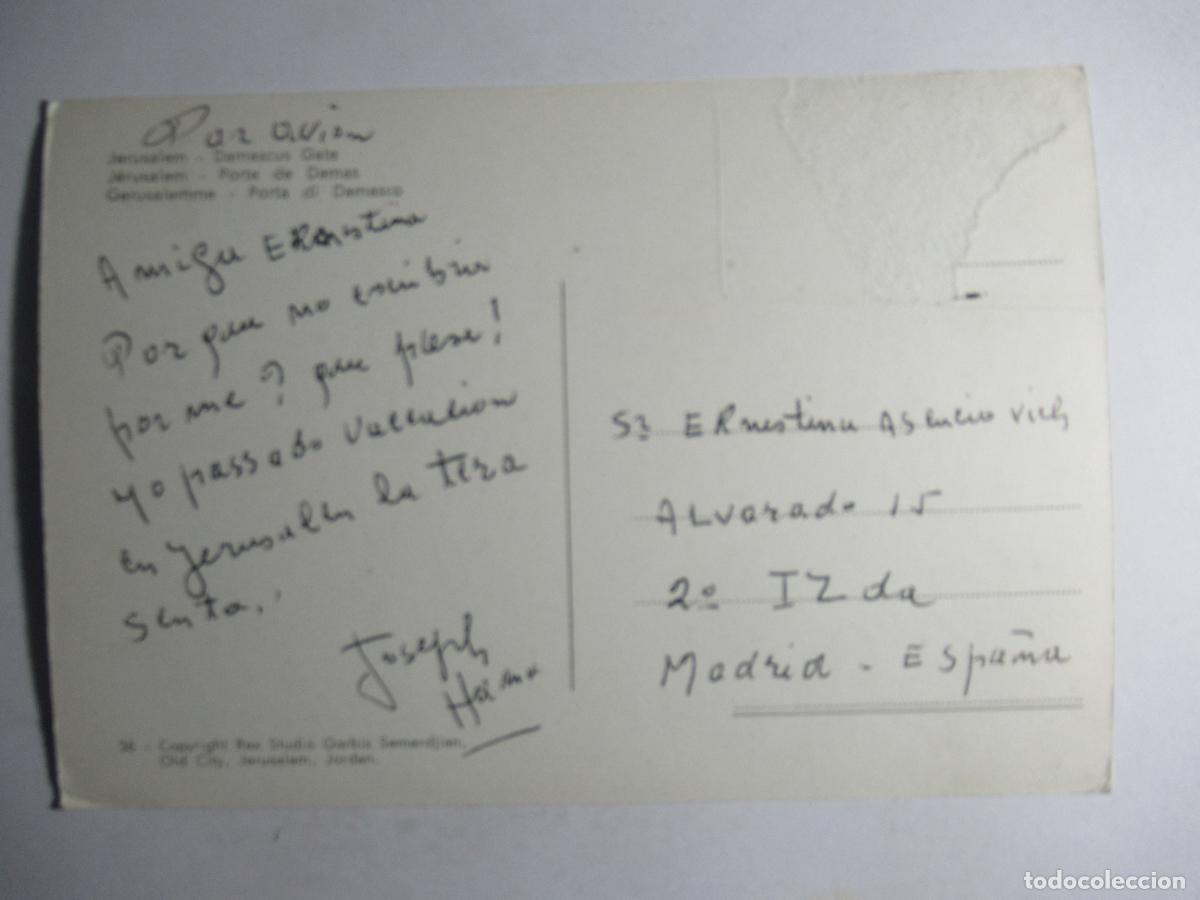 Por avion
Jerusalem - Damascus Gate
Jérusalem - Porte de Damas
Gerusalemme - Porta di Damasco
Amiga ERnestina
Por que no escribir
por me? que pasa!
yo passado vaccacion
en Jerusalen la tera
senta.
Joseph
38 - Copyright Rex Studio Garbis Semerdjian,
Old City, Jerusalem, Jordan.
Sra ERnestina Asencio Vich
ALvarado 15
2º IZda
Madrid - España
todocoleccion